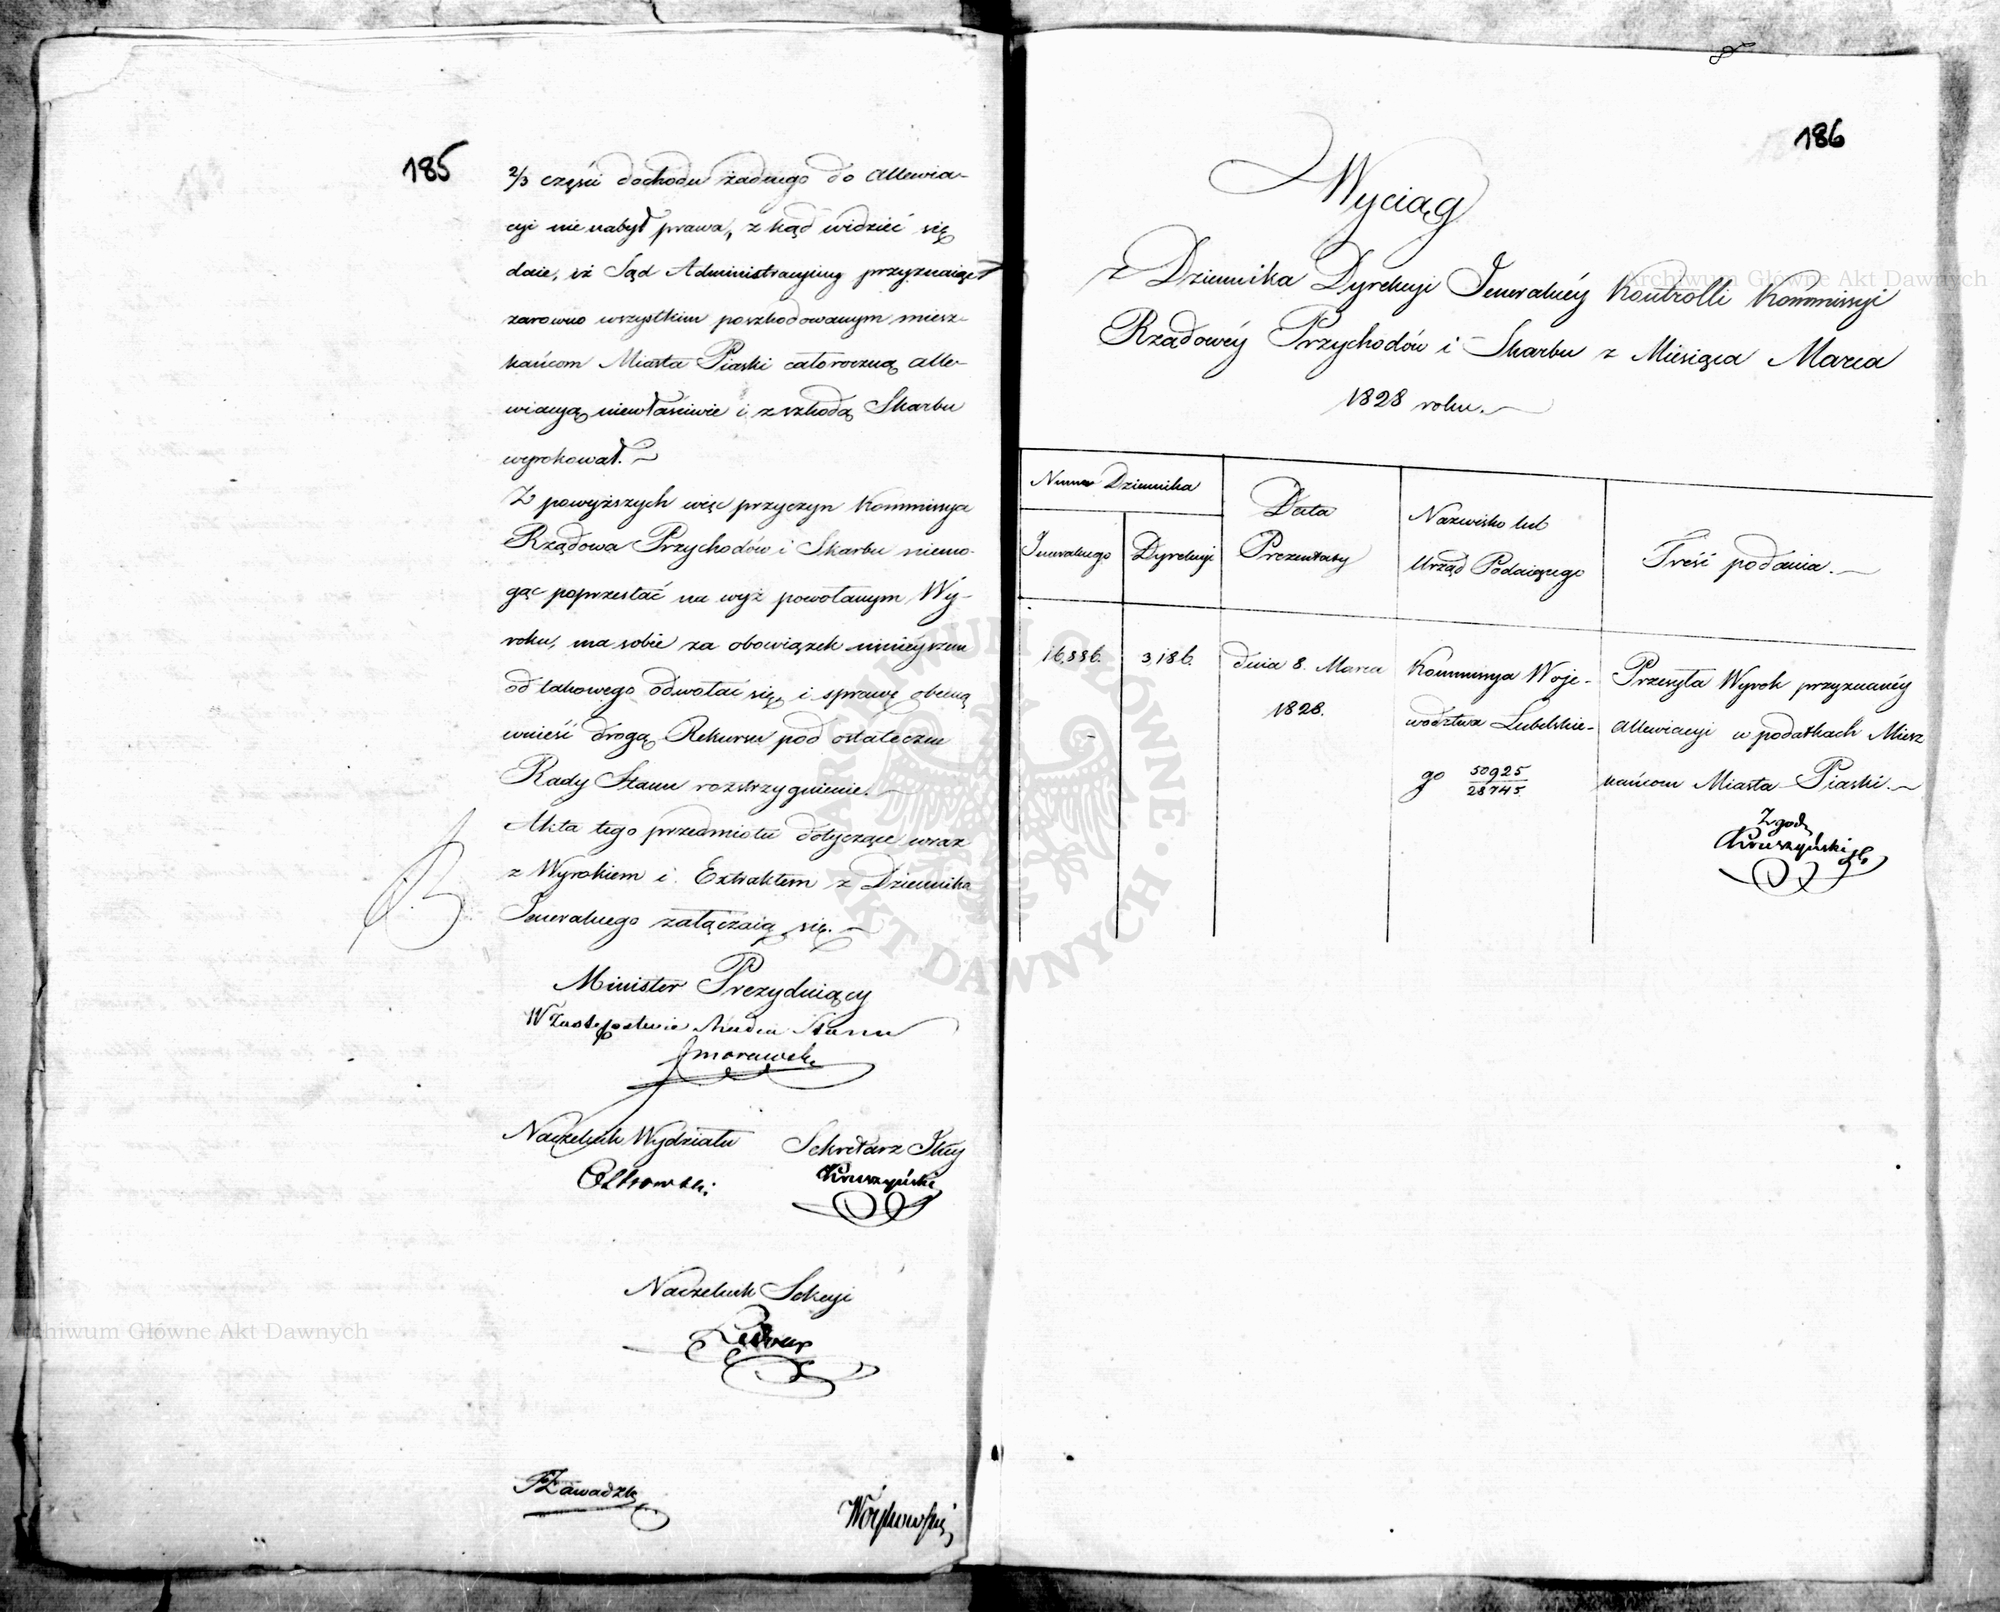 185
2/3 części dochodu żadnego do allewia-
cyi nie nabył prawa, z kąd widzieć się
daie, iż Sąd Administracyiny przyznaiąc
zarowno wszystkim poszkodowanym miesz-
kańcom Miasta Piaski całoroczną alle-
wiacyą niewłaściwie i z szkodą Skarbu
wyrokował.
Z powyższych więc przyczyn Kommissya
Rządowa Przychodów i Skarbu niemo-
gąc poprzestać na wyż powołanym Wy-
roku, ma sobie za obowiązek ninieyszem
od takowego odwołać się, i sprawę obecną
wnieść drogą Rekursu pod ostateczne
Rady Stanu rozstrzygnienie.
Akta tego przedmiotu dotyczące wraz
z Wyrokiem i Extraktem z Dziennika
Jeneralnego załączaią się.
Minister Prezyduiący
W Zastępstwie Radca Stanu
Morawski
Naczelnik Wydziału Sekretarz Jlny
Kruszyński
Naczelnik Sekcyi
FZawadzki
Woykowski
186
Wyciąg
z Dziennika Dyrekcyi Jeneralnéy Kontrolli Kommissyi
Rządowéy Przychodów i Skarbu z Miesiąca Marca
1828 roku.
Numer Dziennika
Jeneralnego Dyrekcyi
Data
Prezentaty
Nazwisko lub
Urząd Podaiącego
Treść podania.
16,886. 3,186. dnia 8. Marca Kommissya Woje- Przesyła Wyrok przyznanéy
1828. wództwa Lubelskie- allewiacyi w podatkach Miesz
go 50925/28745. kańcom Miasta Piaski.
Zgodz
Kruszyński
Archiwum Główne Akt Dawnych
Archiwum Główne Akt Dawnych
ARCHIWUM GŁÓWNE AKT DAWNYCH